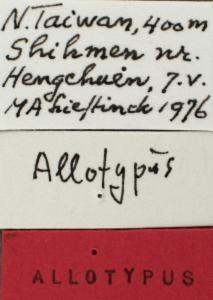 N. Taiwan, 400m
Shihmen nr.
Hengchuen, 7.v.
MA Lieftinck 1976
Allotypus
ALLOTYPUS